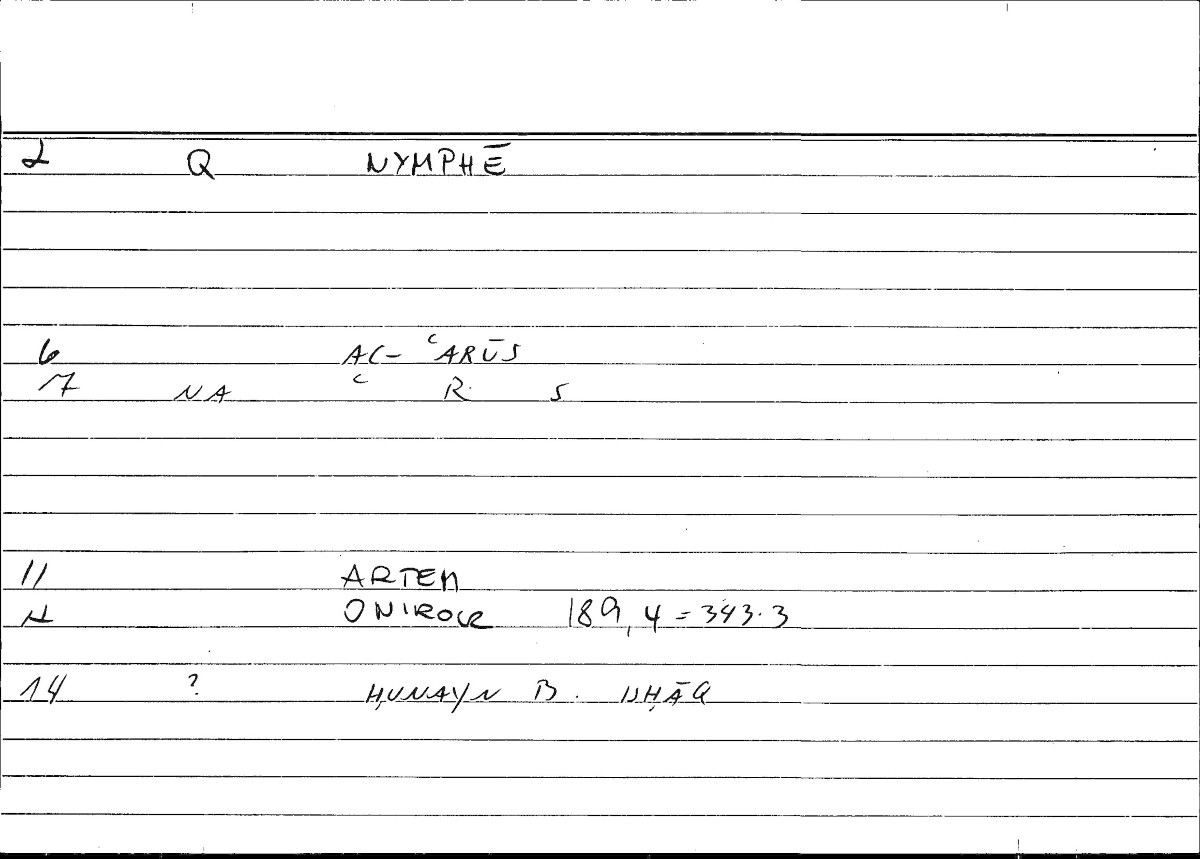 2 Q NYMPHĒ
6 AL- ʿARŪS
7 NA ʿ R S
11 ARTEM
12 ONIROCR 189,4 = 343.3
14 ? ḤUNAYN B. ISḤĀQ